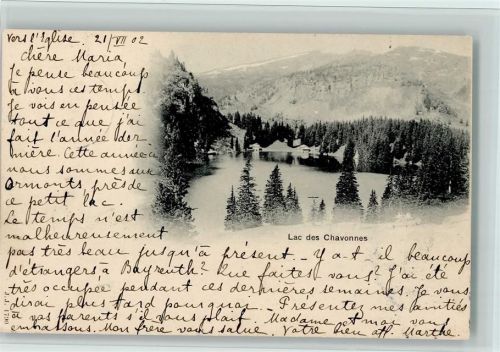 Vers l'Eglise. 21/VII 02
Chère Maria,
Je pense beaucoup
à vous ces temps.
Je vois en pensée
tout ce que j'ai
fait l'année der-
nière. Cette année-ci
nous sommes aux
Ormonts, près de
ce petit lac.
Le temps n'est
malheureusement
pas très beau jusqu'à présent - Y a-t-il beaucoup
d'étrangers à Bayreuth? Que faites vous? J'ai été
très occupée pendant ces dernières semaines. Je vous
dirai plus tard pourquoi. Présentez mes amitiés
à vos parents s'il vous plait. Madame et moi vous
embrassons. Mon frère vous salue. Votre bien aff. Marthe.
Lac des Chavonnes